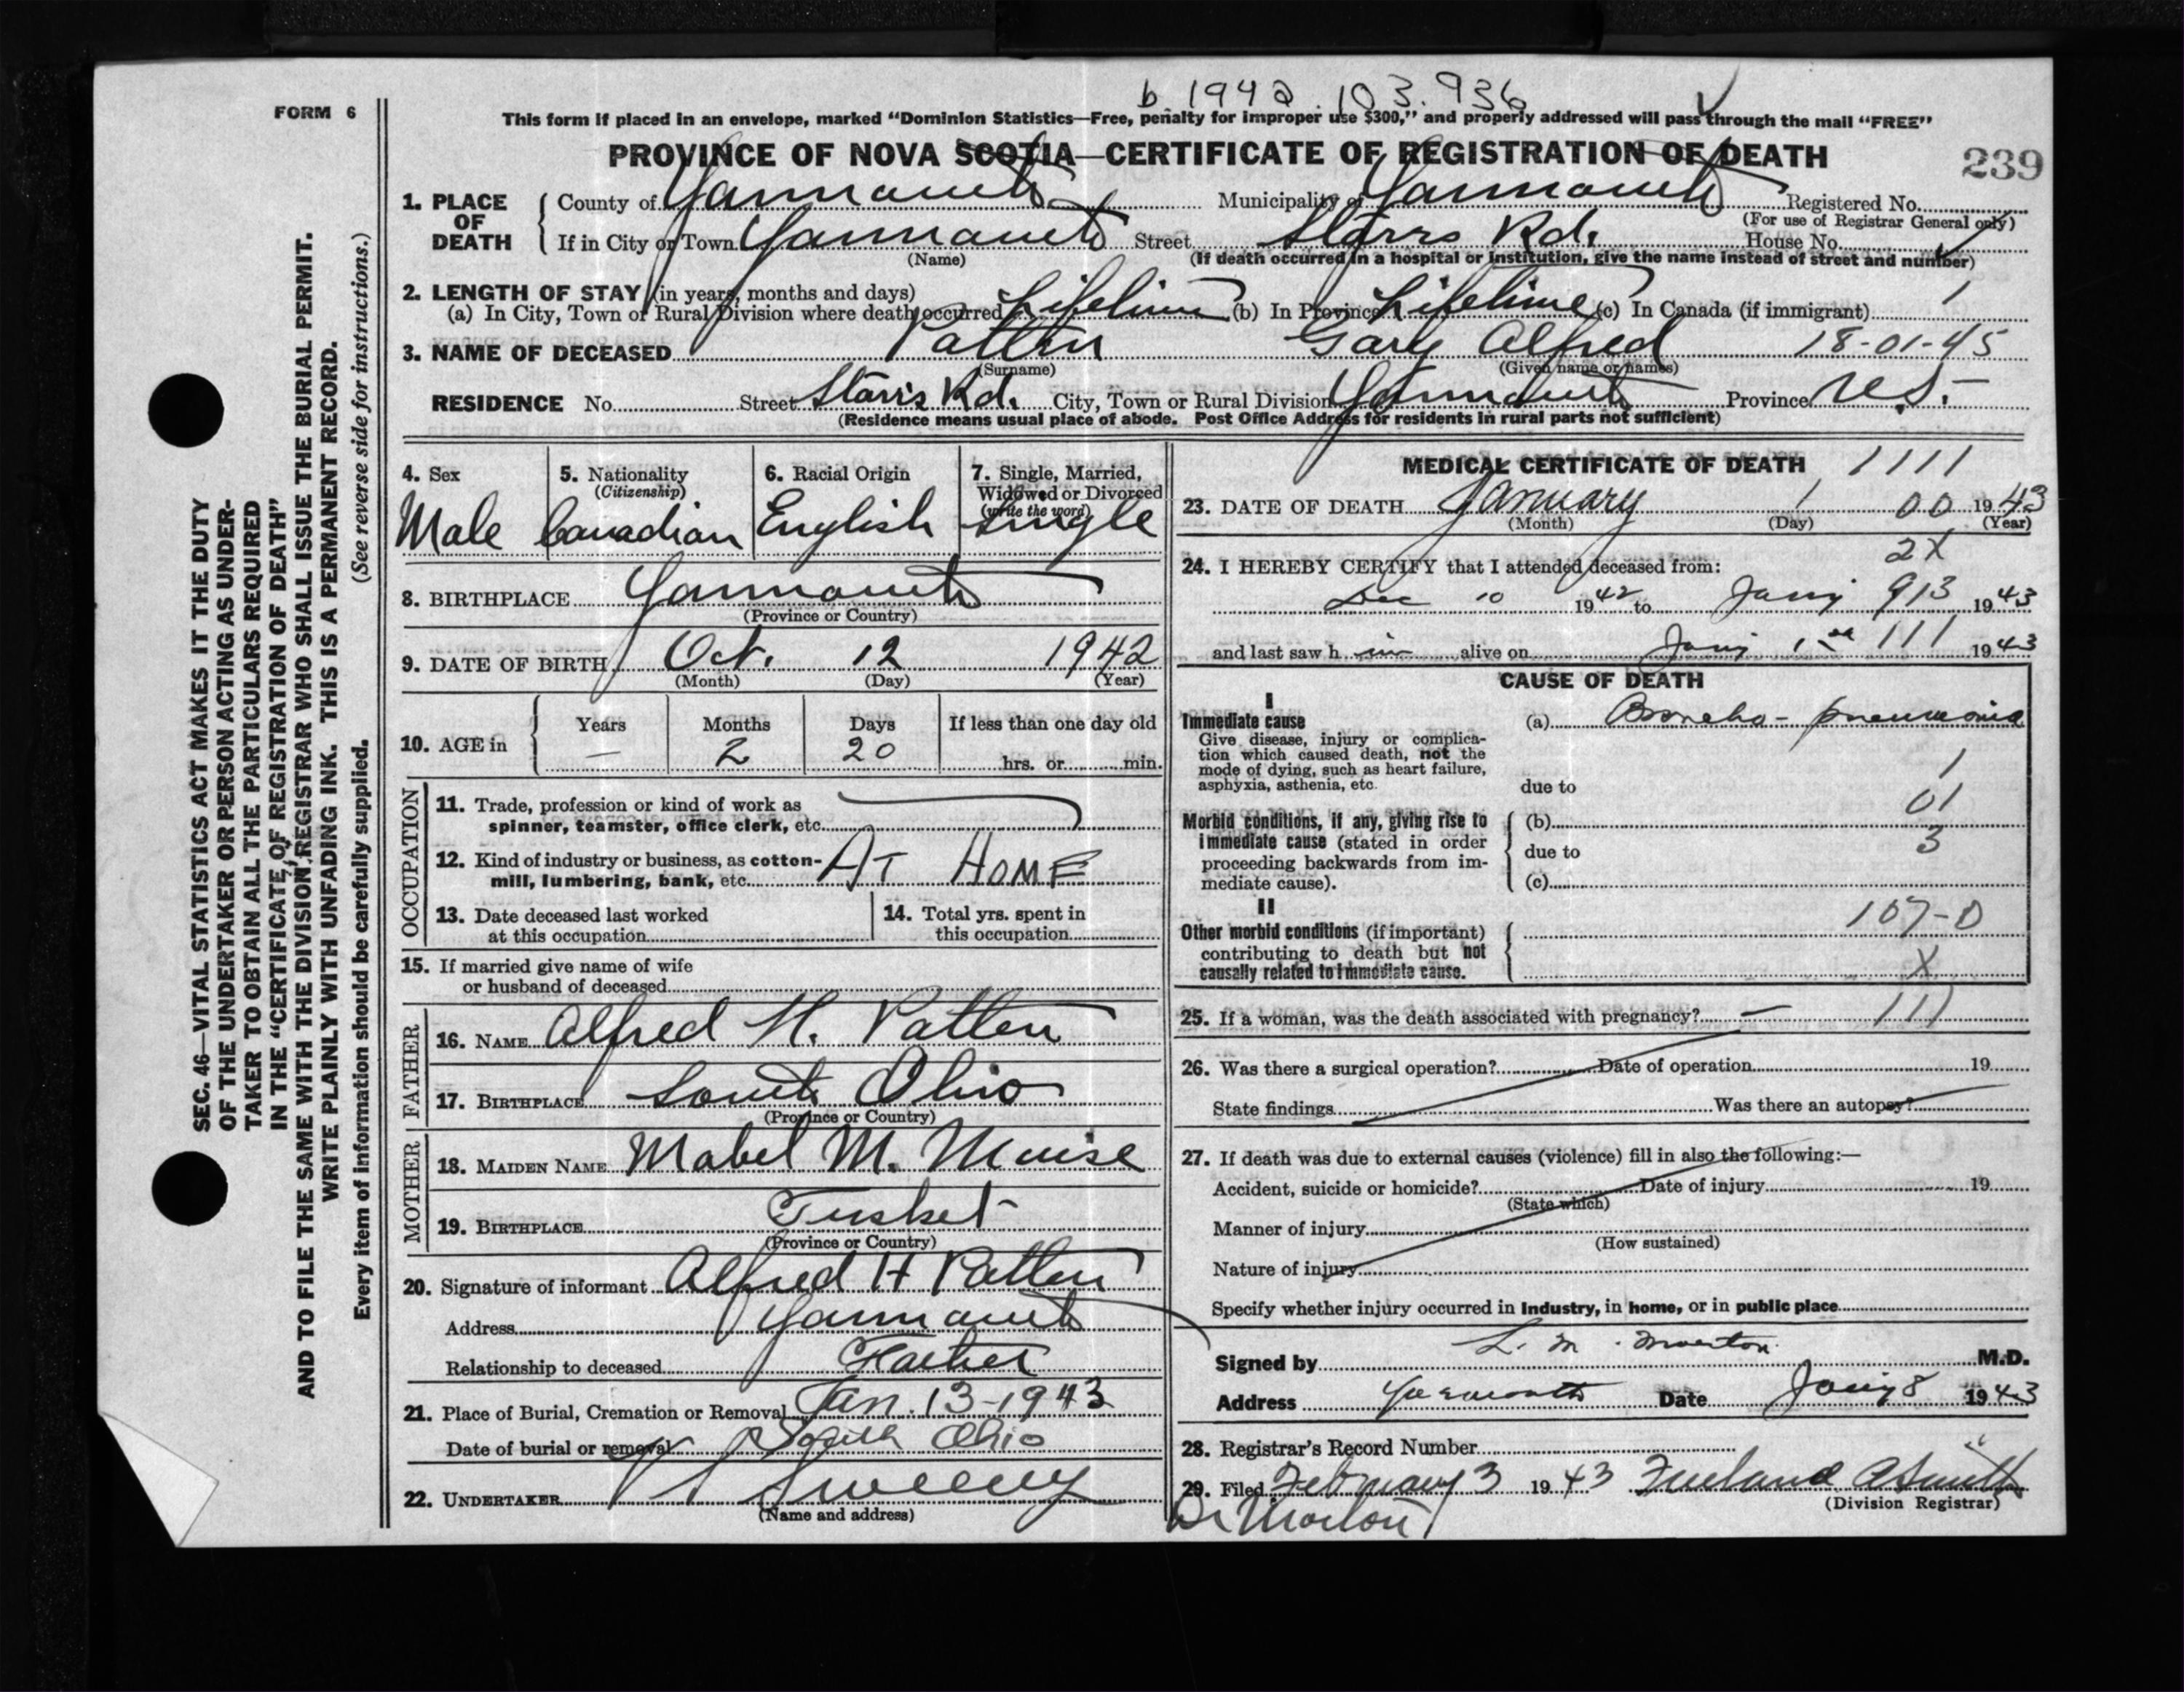 b. 1942. 103.936
FORM 6
This form if placed in an envelope, marked "Dominion Statistics—Free, penalty for improper use $300," and properly addressed will pass through the mail "FREE"
PROVINCE OF NOVA SCOTIA—CERTIFICATE OF REGISTRATION OF DEATH
239
1. PLACE OF DEATH
County of Yarmouth Municipality of Yarmouth Registered No.
(For use of Registrar General only)
If in City or Town Yarmouth Street Starrs Rd. House No.
(Name) (If death occurred in a hospital or institution, give the name instead of street and number)
2. LENGTH OF STAY (in years, months and days)
(a) In City, Town or Rural Division where death occurred Lifetime (b) In Province Lifetime (c) In Canada (if immigrant) 1
3. NAME OF DECEASED Patten Gary Alfred 18-01-45
(Surname) (Given name or names)
RESIDENCE No. Street Starrs Rd. City, Town or Rural Division Yarmouth Province N.S.
(Residence means usual place of abode. Post Office Address for residents in rural parts not sufficient)
4. Sex 5. Nationality (Citizenship) 6. Racial Origin 7. Single, Married, Widowed or Divorced (write the word)
Male Canadian English Single
8. BIRTHPLACE Yarmouth
(Province or Country)
9. DATE OF BIRTH Oct. 12 1942
(Month) (Day) (Year)
10. AGE in Years Months Days If less than one day old
— 2 20 hrs. or min.
OCCUPATION
11. Trade, profession or kind of work as
spinner, teamster, office clerk, etc.
12. Kind of industry or business, as cotton-
mill, lumbering, bank, etc. AT HOME
13. Date deceased last worked
at this occupation
14. Total yrs. spent in
this occupation
15. If married give name of wife
or husband of deceased
FATHER
16. NAME Alfred H. Patten
17. BIRTHPLACE South Ohio
(Province or Country)
MOTHER
18. MAIDEN NAME Mabel M. Muise
19. BIRTHPLACE Tusket
(Province or Country)
20. Signature of informant Alfred H Patten
Address Yarmouth
Relationship to deceased Father
21. Place of Burial, Cremation or Removal Jan. 13-1943
Date of burial or removal South Ohio
22. UNDERTAKER V S Sweeny
(Name and address)
MEDICAL CERTIFICATE OF DEATH 1111
23. DATE OF DEATH January 1 00 1943
(Month) (Day) (Year)
2X
24. I HEREBY CERTIFY that I attended deceased from:
Dec 10 1942 to Jany 913 1943
and last saw h im alive on Jany 1st 111 1943
CAUSE OF DEATH
I
Immediate cause
Give disease, injury or complica-
tion which caused death, not the
mode of dying, such as heart failure,
asphyxia, asthenia, etc.
(a) Broncho-pneumonia
1
due to
01
Morbid conditions, if any, giving rise to
immediate cause (stated in order
proceeding backwards from im-
mediate cause).
(b)
due to 3
(c)
II
Other morbid conditions (if important)
contributing to death but not
causally related to immediate cause.
107-0
X
25. If a woman, was the death associated with pregnancy? — 111
26. Was there a surgical operation? Date of operation 19
State findings Was there an autopsy?
27. If death was due to external causes (violence) fill in also the following:—
Accident, suicide or homicide? Date of injury 19
(State which)
Manner of injury
(How sustained)
Nature of injury
Specify whether injury occurred in Industry, in home, or in public place
Signed by L. M. Morton M.D.
Address Yarmouth Date Jany 8 1943
28. Registrar's Record Number
29. Filed February 3 1943 Freeland A Smith
(Division Registrar)
Dr Morton
SEC. 46—VITAL STATISTICS ACT MAKES IT THE DUTY
OF THE UNDERTAKER OR PERSON ACTING AS UNDER-
TAKER TO OBTAIN ALL THE PARTICULARS REQUIRED
IN THE "CERTIFICATE OF REGISTRATION OF DEATH"
AND TO FILE THE SAME WITH THE DIVISION REGISTRAR WHO SHALL ISSUE THE BURIAL PERMIT.
WRITE PLAINLY WITH UNFADING INK. THIS IS A PERMANENT RECORD.
Every item of information should be carefully supplied. (See reverse side for instructions.)